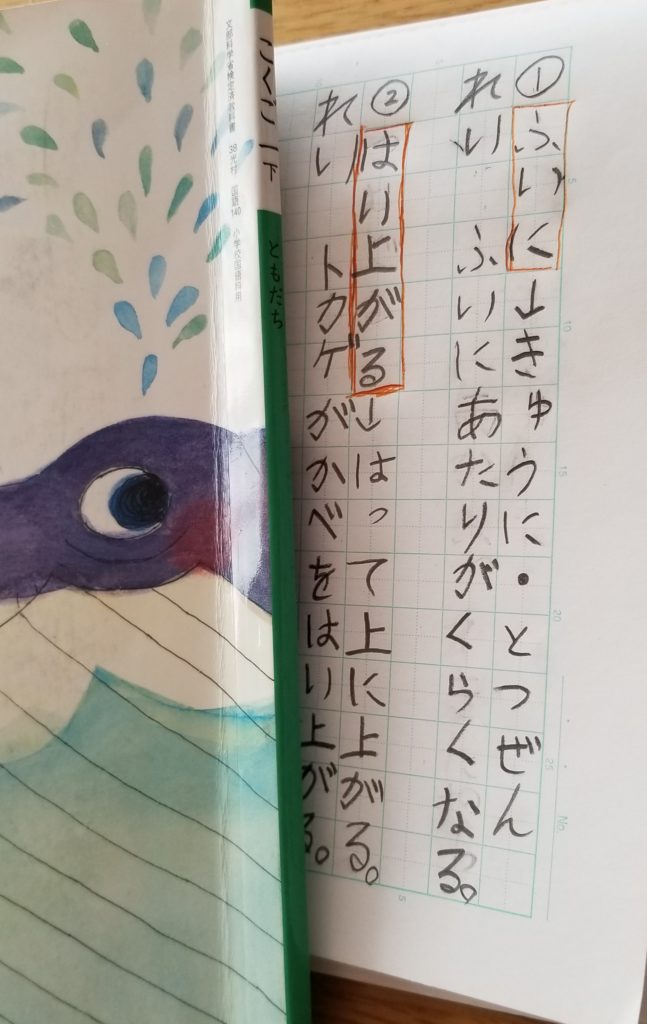 ①ふいに→きゅうに・とつぜん
れい ふいにあたりがくらくなる。
②はい上がる→はって上に上がる。
れい トカゲがかべをはい上がる。
こくご 一下
ともだち
文部科学省検定済教科書 38光村 国語 140 小学校国語科用
5
10
15
20
25
No.
5